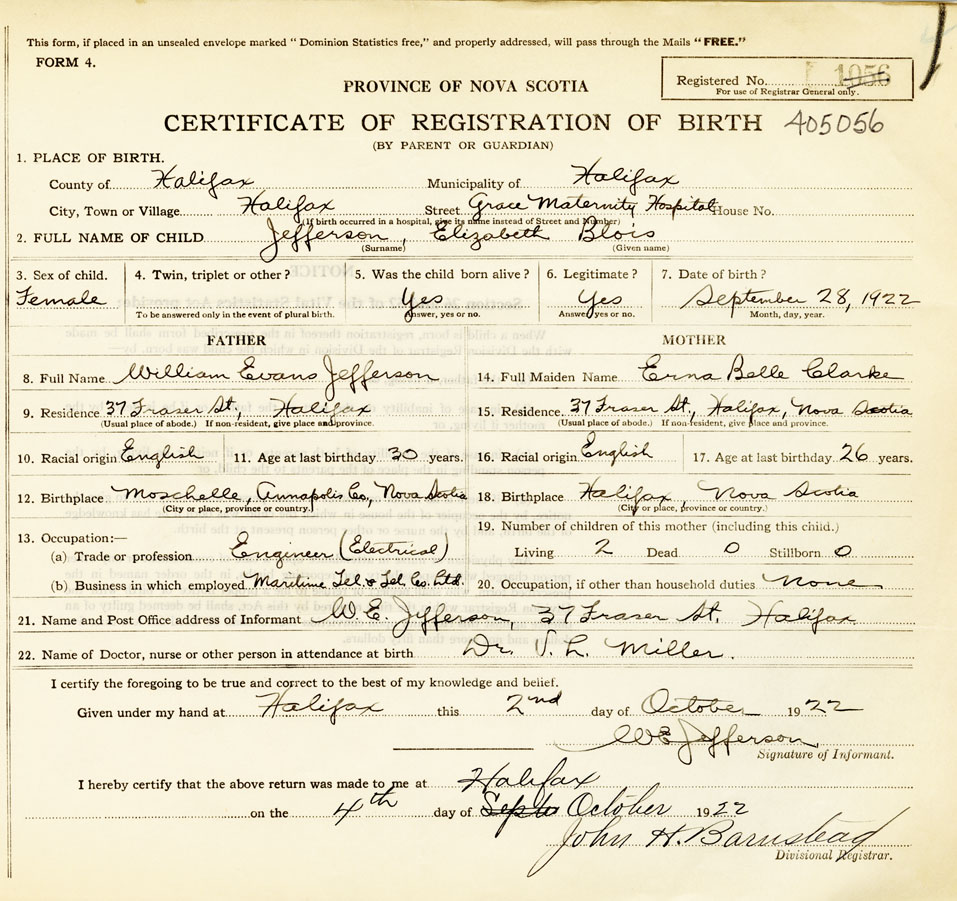 This form, if placed in an unsealed envelope marked " Dominion Statistics free," and properly addressed, will pass through the Mails "FREE."
FORM 4.
Registered No. 1056
For use of Registrar General only.
PROVINCE OF NOVA SCOTIA
CERTIFICATE OF REGISTRATION OF BIRTH 405056
(BY PARENT OR GUARDIAN)
1. PLACE OF BIRTH.
County of Halifax Municipality of Halifax
City, Town or Village Halifax Street Grace Maternity Hospital House No.
(If birth occurred in a hospital, give its name instead of Street and Number)
2. FULL NAME OF CHILD Jefferson, Elizabeth Blois
(Surname) (Given name)
3. Sex of child. 4. Twin, triplet or other? 5. Was the child born alive? 6. Legitimate? 7. Date of birth?
Female Yes Yes September 28, 1922
To be answered only in the event of plural birth. Answer, yes or no. Answer yes or no. Month, day, year.
FATHER MOTHER
8. Full Name William Evans Jefferson 14. Full Maiden Name Erna Belle Clarke
9. Residence 37 Fraser St., Halifax 15. Residence 37 Fraser St., Halifax, Nova Scotia
(Usual place of abode.) If non-resident, give place and province. (Usual place of abode.) If non-resident, give place and province.
10. Racial origin English 11. Age at last birthday 30 years. 16. Racial origin English 17. Age at last birthday 26 years.
12. Birthplace Moschelle, Annapolis Co., Nova Scotia 18. Birthplace Halifax, Nova Scotia
(City or place, province or country.) (City or place, province or country.)
13. Occupation:— 19. Number of children of this mother (including this child.)
(a) Trade or profession Engineer (Electrical) Living 2 Dead 0 Stillborn 0
(b) Business in which employed Maritime Tel. & Tel. Co. Ltd. 20. Occupation, if other than household duties None
21. Name and Post Office address of Informant W. E. Jefferson, 37 Fraser St. Halifax
22. Name of Doctor, nurse or other person in attendance at birth Dr. V. L. Miller.
I certify the foregoing to be true and correct to the best of my knowledge and belief.
Given under my hand at Halifax this 2nd day of October 1922
W E Jefferson
Signature of Informant.
I hereby certify that the above return was made to me at Halifax
on the 4th day of Sept October 1922
John H. Barnstead
Divisional Registrar.